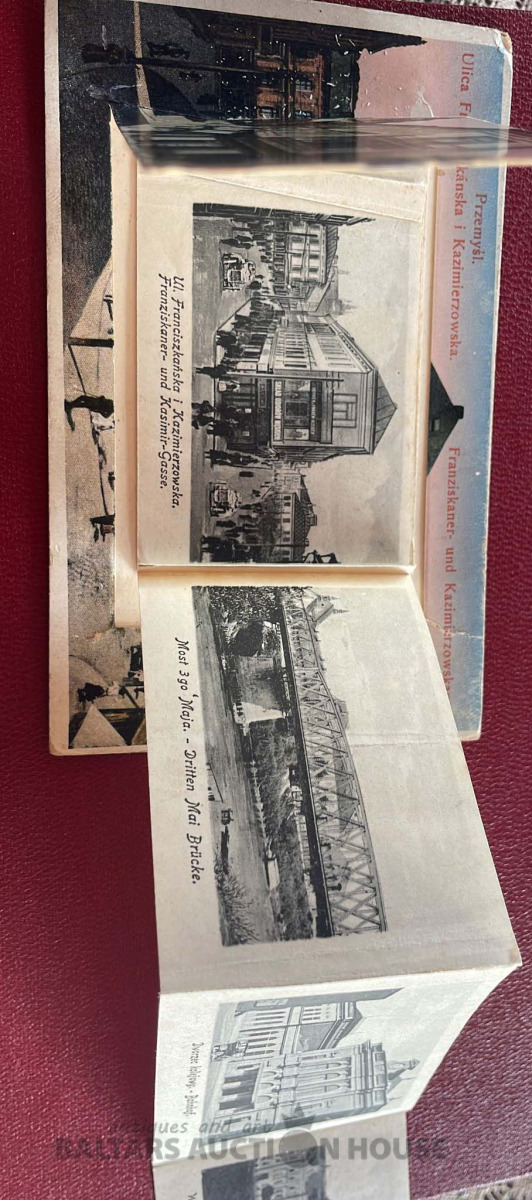 Przemyśl.
Ulica kańska i Kazimierzowska.
Franziskaner- und Kazimierzowska
Ul. Franciszkańska i Kazimierzowska.
Franziskaner- und Kasimir-Gasse.
Most 3go Maja. - Dritten Mai Brücke.
Dworzec kolejowy. - Bahnhof.
antiques and art
BALTARS AUCTION HOUSE